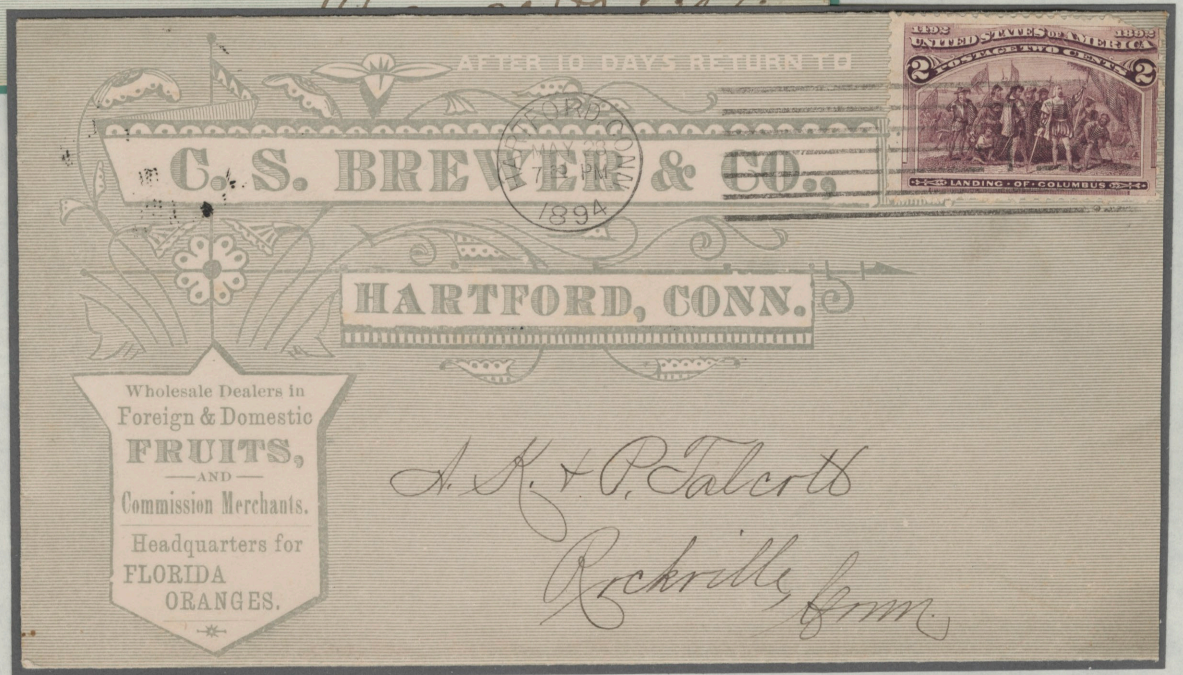 AFTER 10 DAYS RETURN TO
C. S. BREWER & CO.,
HARTFORD, CONN.
HARTFORD, CONN.
MAY 28
7 PM
1894
1492 1892
UNITED STATES OF AMERICA
POSTAGE TWO CENTS
2 2
LANDING · OF · COLUMBUS
Wholesale Dealers in
Foreign & Domestic
FRUITS,
AND
Commission Merchants.
Headquarters for
FLORIDA
ORANGES.
A. K. & P. Talcott
Rockville, Conn.